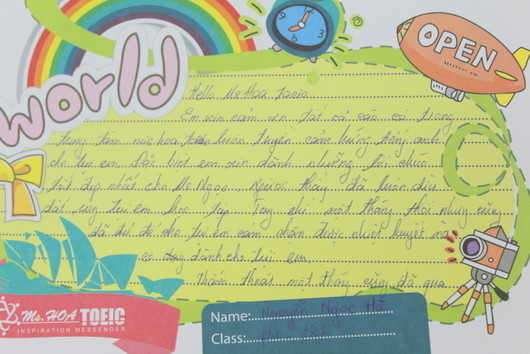 world
OPEN
Hello Ms Hoa Toeic
Em xin cảm ơn tất cả các cô trong
trung tâm ms hoa toeic luôn truyền cảm hứng tiếng anh
cho tụi em, đặc biệt em xin dành những lời chúc
tốt đẹp nhất cho Ms Ngọc. Người thầy đã luôn dìu
dắt cùng tụi em học tập. Tuy chỉ một tháng thôi nhưng cũng
đã đủ để cho tụi em cảm nhận được nhiệt huyết mà
cô dạy dành cho tụi em
Thấm thoát một tháng cũng đã qua
Ms. HOA TOEIC
INSPIRATION MESSENGER
Name: Nguyễn Ngọc
Class: